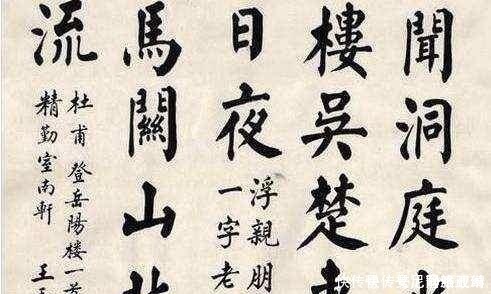 聞洞庭
樓吳楚
日夜
浮親朋
一字老
馬關山北
流
杜甫登岳陽楼一首
精勤室南軒 王